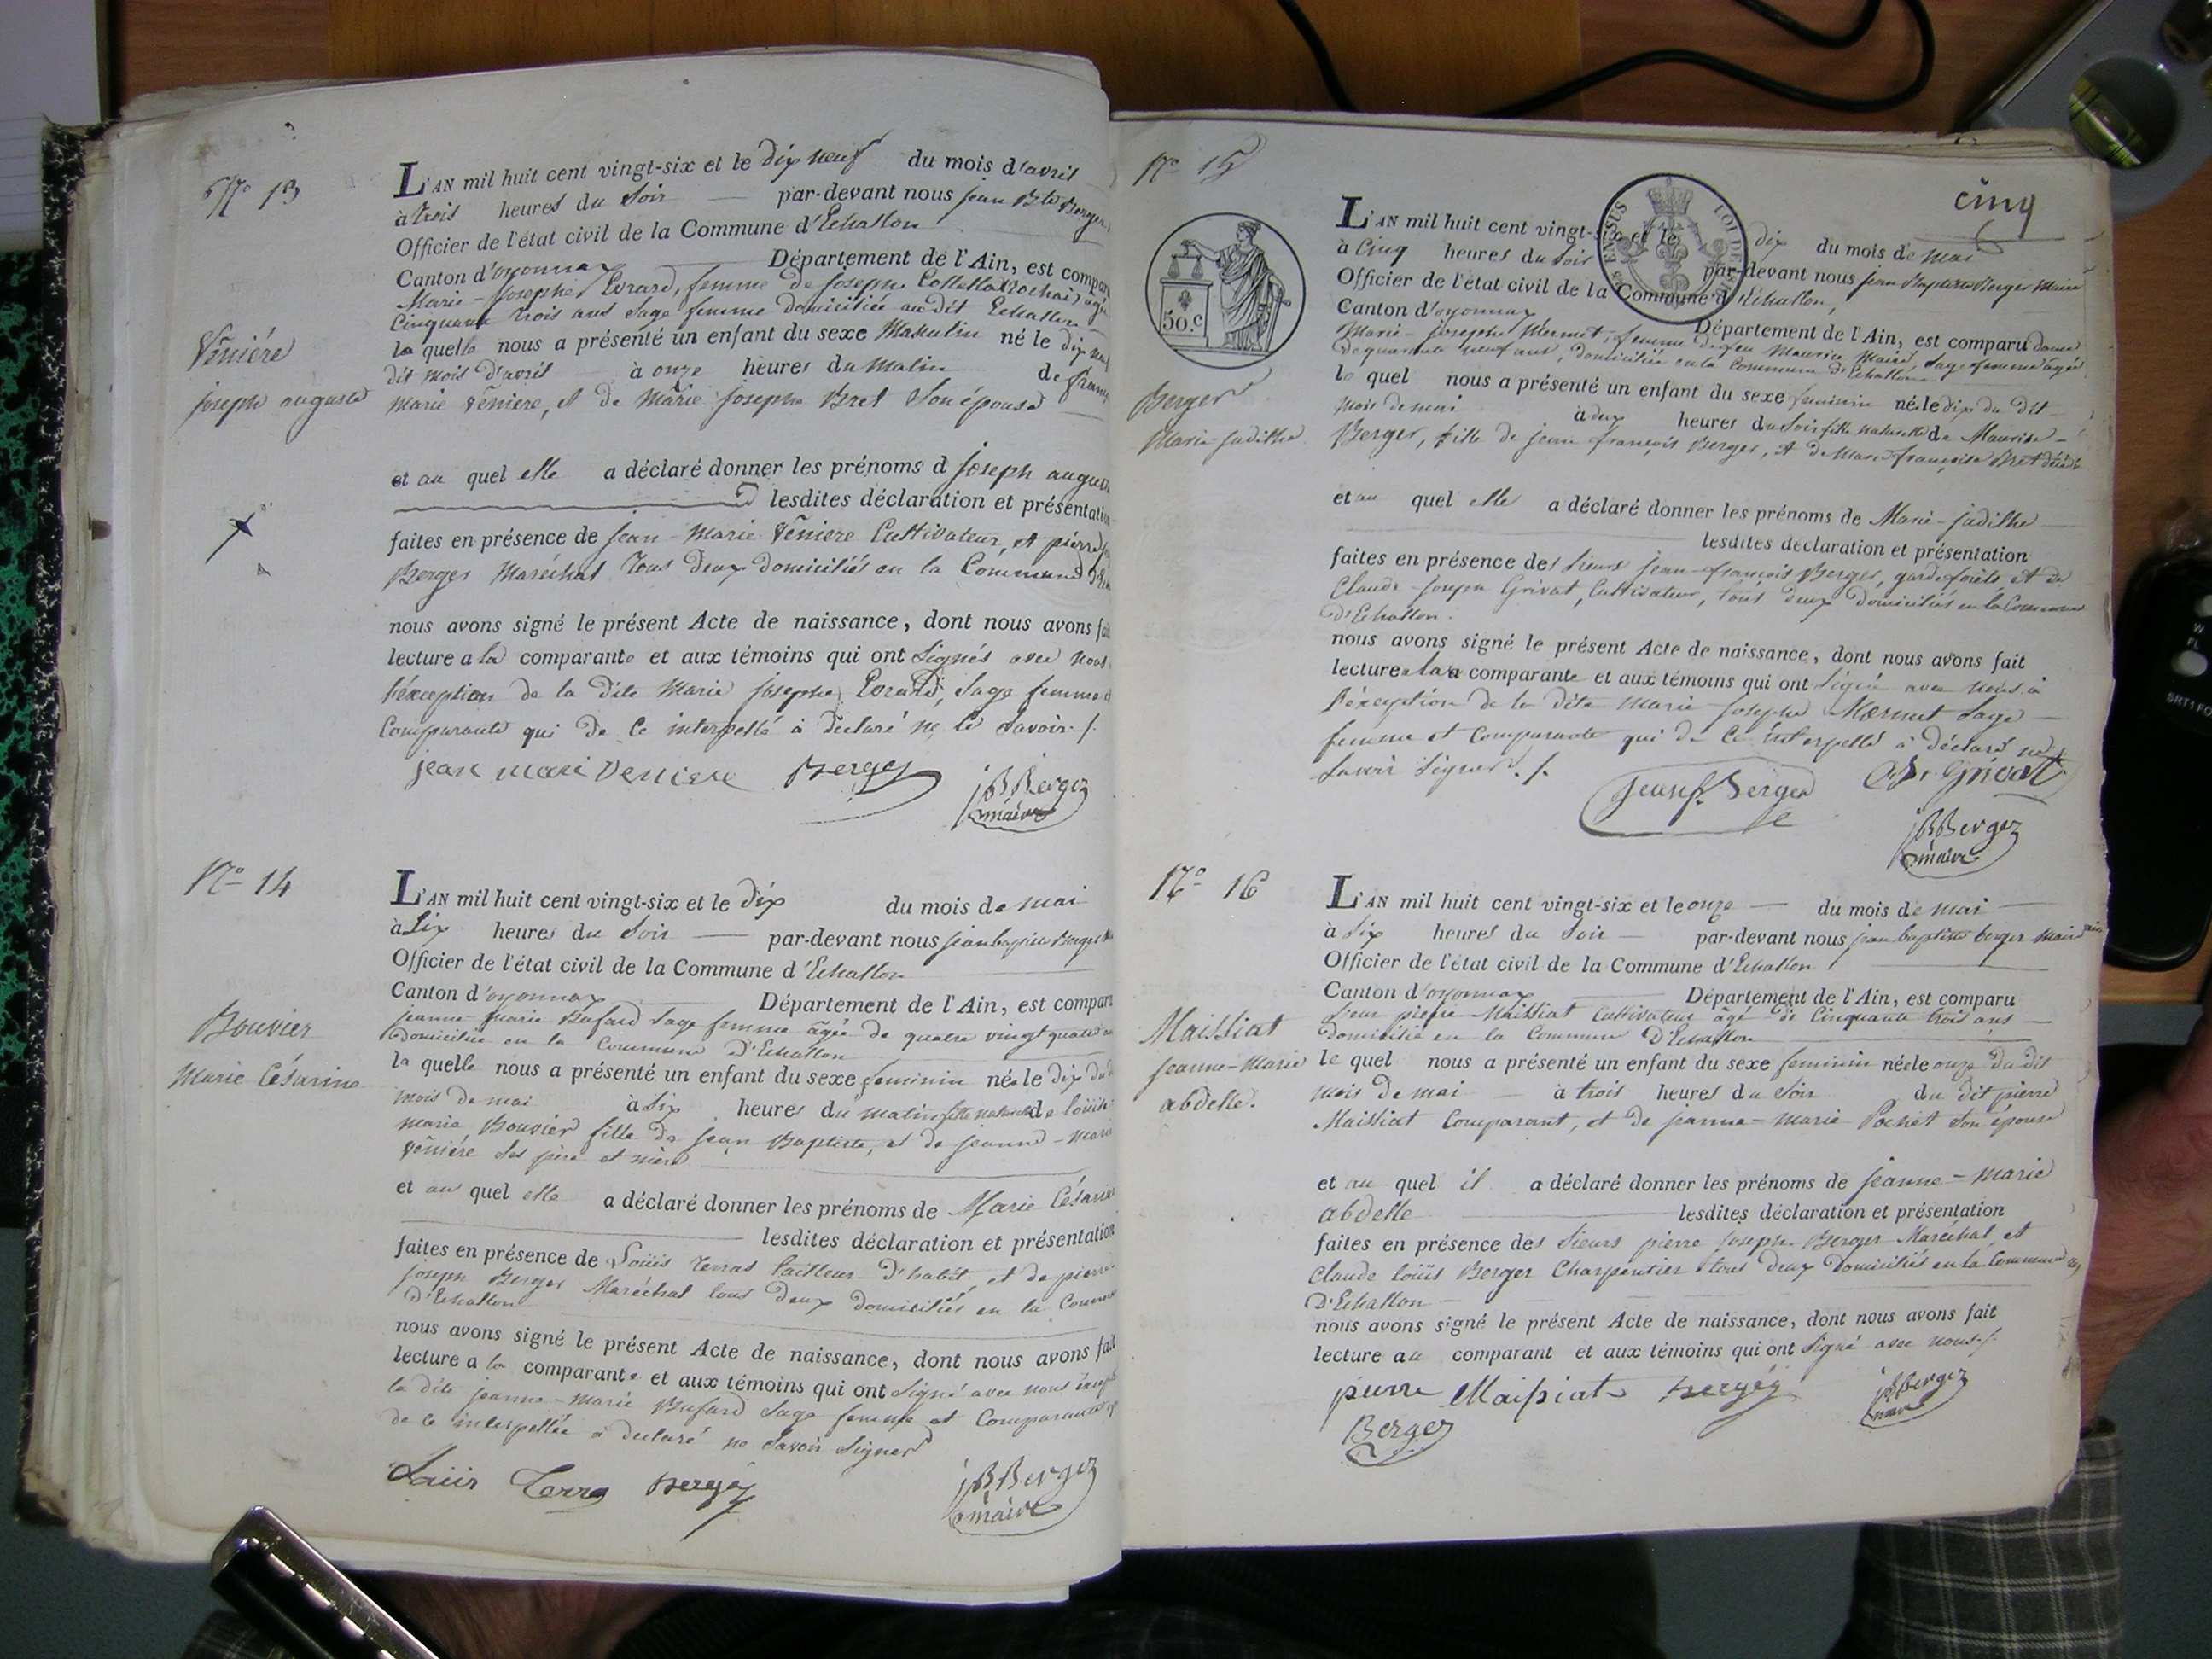 N° 13
L'AN mil huit cent vingt-six et le dix neuf du mois d'avril
à trois heures du Soir par-devant nous jean Bte Berger
Officier de l'état civil de la Commune d'Echallon
Canton d'oyonnax Département de l'Ain, est compar
Marie-Josephe Evrard, femme de Joseph
Cinquante trois ans Sage femme domiciliée au dit Echallon
la quelle nous a présenté un enfant du sexe Masculin né le dix neuf
Venière
dit mois d'avril à onze heures du Matin de
joseph auguste
marie Veniere, et de Marie josephe Bret Son épouse
et au quel elle a déclaré donner les prénoms d joseph auguste
lesdites déclaration et présentation
faites en présence de jean-Marie Veniere Cultivateur, et pierre
Berger Maréchal Tous deux domiciliés en la Commune
nous avons signé le présent Acte de naissance, dont nous avons fait
lecture a la comparante et aux témoins qui ont Signés avec nous
l'éxception de la dite Marie josephe Evrard, Sage femme
Comparante qui de ce interpellé à déclaré ne le Savoir ./.
jean marie Veniere Berger JBBerger
maire
N° 14
L'AN mil huit cent vingt-six et le dix du mois de mai
à Six heures du Soir par-devant nous jean baptiste Berger
Officier de l'état civil de la Commune d'Echallon
Canton d'oyonnax Département de l'Ain, est compar
jeanne-marie Bufard Sage femme âgée de quatre vingt quatre
Bouvier
domiciliée en la Commune d'Echallon
la quelle nous a présenté un enfant du sexe feminin née le dix du
Marie Césarine
mois de mai à Six heures du matin fille naturelle de
marie Bouvier fille de jean Baptiste, et de jeanne-marie
Véniére Ses père et mère
et au quel elle a déclaré donner les prénoms de Marie Césarine
lesdites déclaration et présentation
faites en présence de Loüis Terras tailleur d'habit, et de pierre
joseph Berger Maréchal tous deux domiciliés en la Commune
D'Echallon
nous avons signé le présent Acte de naissance, dont nous avons fait
lecture a la comparante et aux témoins qui ont Signé avec nous
la dite jeanne-marie Bufard Sage femme et Comparante
de ce interpellée à déclaré ne Savoir Signer
Loüis Terra Berger JBBerger
maire
N° 15
cinq
L'AN mil huit cent vingt-six et le dix du mois de mai
à Cinq heures du Soir par-devant nous jean Baptiste Berger Maire
50.c
Officier de l'état civil de la Commune d'Echallon,
Canton d'oyonnax Département de l'Ain, est comparu
Marie-josephe Mermet, femme de feu Maurice Sage femme âgée
de quarante neuf ans, domiciliée en la Commune d'Echallon
le quel nous a présenté un enfant du sexe feminin née le dix du dit
Berger
mois de mai à deux heures du Soir fille naturelle de Maurise
Marie-judithe
Berger, fille de jean françois Berger, et de Marie françoise Bret
et au quel elle a déclaré donner les prénoms de Marie-judithe
lesdites déclaration et présentation
faites en présence des Sieurs jean-françois Berger, garde forêts et de
Claude-joseph Grivat, Cultivateur, tous deux domiciliés en la Commune
d'Echallon.
nous avons signé le présent Acte de naissance, dont nous avons fait
lecture a la comparante et aux témoins qui ont Signé avec nous à
l'éxception de la dite Marie-josephe Mermet Sage
femme et Comparante qui de ce interpellé à déclaré ne
Savoir Signer ./.
jean f. Berger Grivat
JBBerger
maire
N° 16
L'AN mil huit cent vingt-six et le onze du mois de mai
à Six heures du Soir par-devant nous jean baptiste berger Maire
Officier de l'état civil de la Commune d'Echallon
Canton d'oyonnax Département de l'Ain, est comparu
Sieur pierre Maissiat Cultivateur âgé de Cinquante trois ans
Maissiat
domicilié en la Commune d'Echallon
jeanne-Marie
le quel nous a présenté un enfant du sexe feminin née le onze du dit
abdelle.
mois de mai à trois heures du Soir du dit pierre
Maissiat Comparant, et de jeanne-marie Pochet Son épouse
et au quel il a déclaré donner les prénoms de jeanne-marie
abdelle lesdites déclaration et présentation
faites en présence des Sieurs pierre joseph Berger Maréchal, et
Claude loüis Berger Charpentier tous deux domiciliés en la Commune
D'Echallon
nous avons signé le présent Acte de naissance, dont nous avons fait
lecture au comparant et aux témoins qui ont Signé avec nous ./.
pierre Maissiat Berger JBBerger
maire
Berger